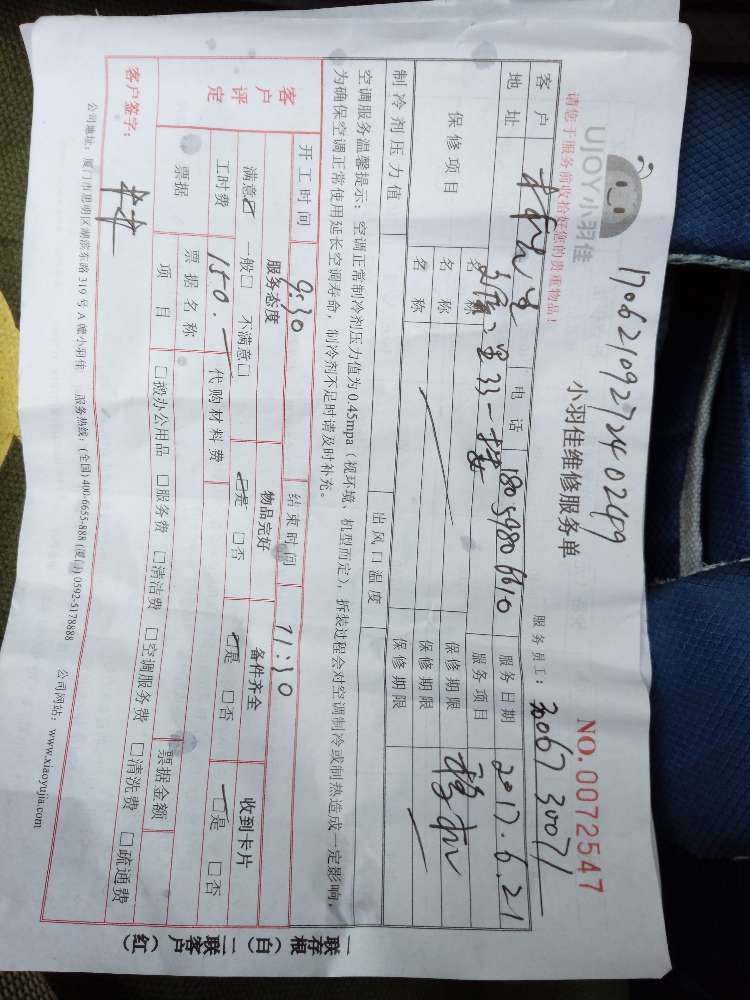 1706210927240249
UJOY小羽佳
请您于服务前收拾好您的贵重物品!
小羽佳维修服务单
NO.0072547
服务员工: 30067 30071
客户 电话 18059806610 服务日期 2017.6.21
地址 服务项目
保修项目 名称 保修期限
名称 保修期限
名称 保修期限
制冷剂压力值 出风口温度
空调服务温馨提示: 空调正常制冷剂压力值为0.45mpa (视环境、机型而定), 拆装过程会对空调制冷或制热造成一定影响,
为确保空调正常使用延长空调寿命, 制冷剂不足时请及时补充。
开工时间 9:30 结束时间 11:30
客户评定 服务态度 物品完好 备件齐全 收到卡片
满意☑ 一般□ 不满意□ ☑是 □否 ☑是 □否 ☑是 □否
工时费 150.— 代购材料费
票据 票据名称 票据金额
项目 □搬办公用品 □服务费 □清洁费 □空调服务费 □清洗费 □疏通费
客户签字:
公司地址: 厦门市思明区湖滨东路319号A幢小羽佳 服务热线: (全国) 400-6655-888 (厦门) 0592-5178888 公司网站: www.xiaoyujia.com
一联存根(白) 二联客户(红)